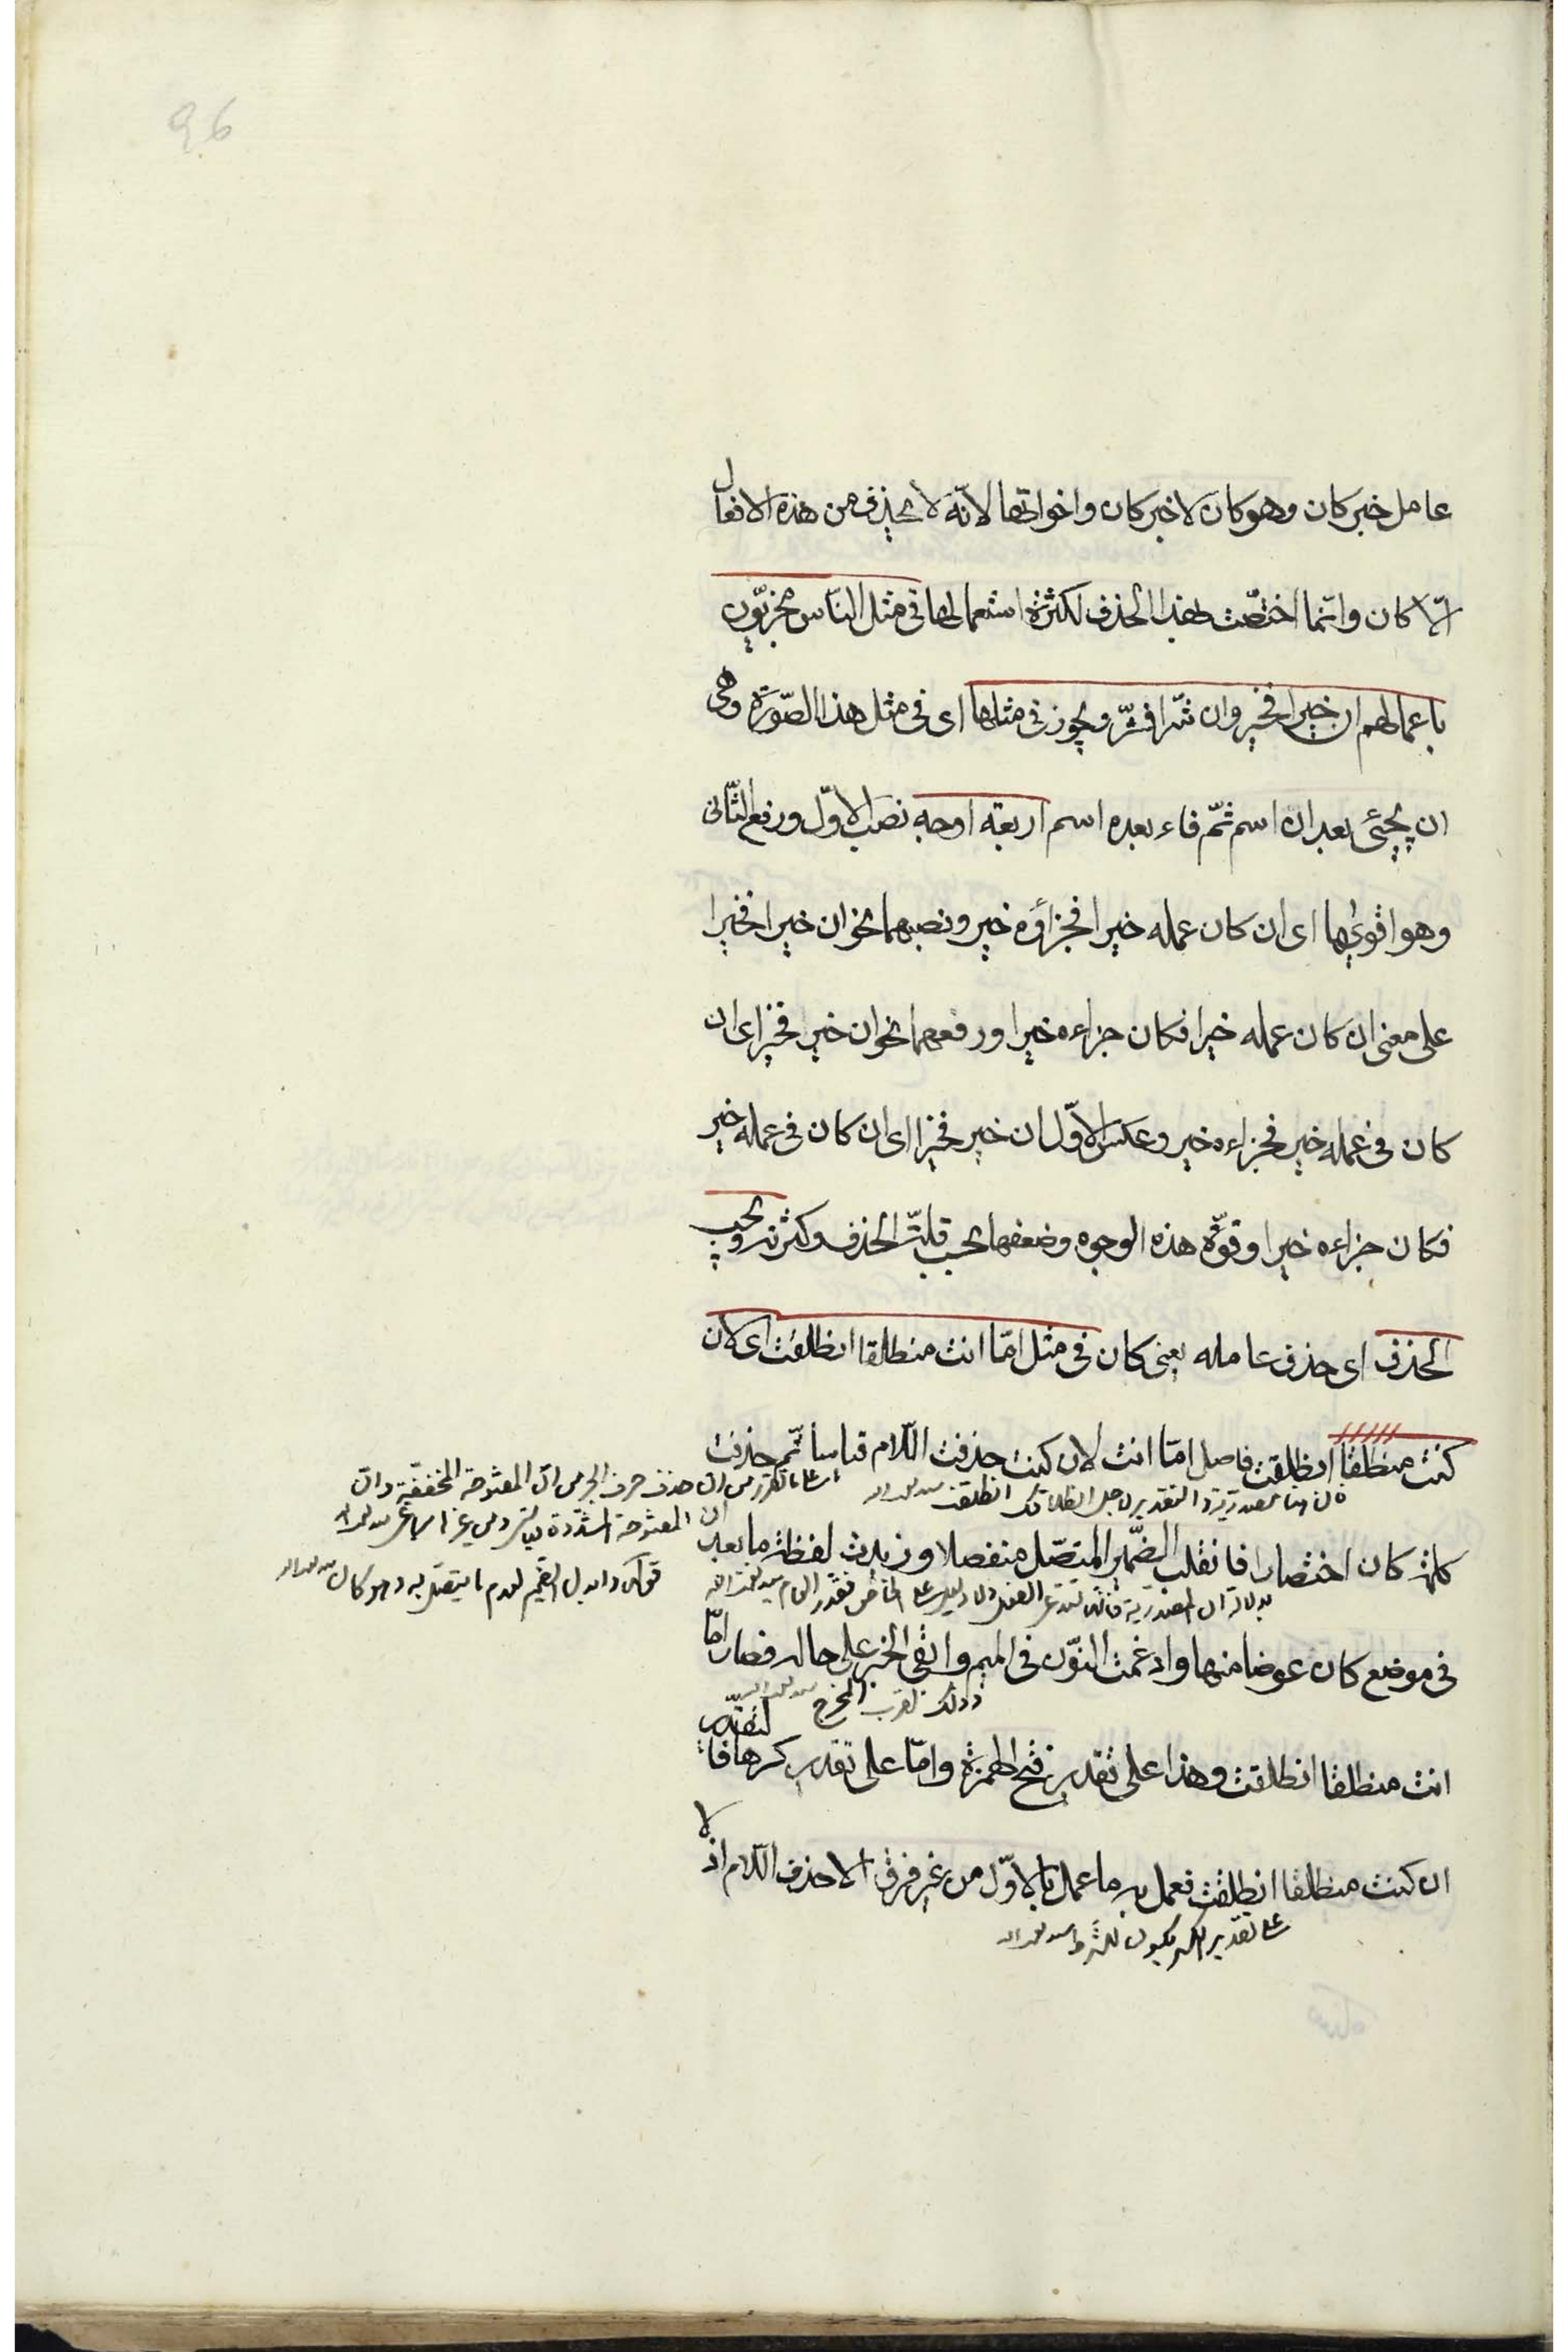 96
عامل خبر كان وهو كان لا خبر كان واخواتها لانّه لا يحذف من هذه الافعال
الّا كان وانّما اختصّت بهذا الحذف لكثرة استعمالها فى مثل النّاس مجزيّون
باعمالهم ان خيرا فخير وان شرّا فشرّ ويجوز فى مثلها اى فى مثل هذا الصّورة وهى
ان يجيئ بعد ان اسم ثمّ فاء بعده اسم اربعة اوجه نصب الاوّل ورفع الثّانى
وهو اقويها اى ان كان عمله خيرا فجزاؤه خير ونصبهما نحو ان خيرا فخيرا
على معنى ان كان عمله خيرا فكان جزاءه خيرا ورفعهما نحو ان خير فخير اى ان
كان فى عمله خير فجزاءه خير وعكس الاوّل ان خير فخيرا اى ان كان فى عمله خير
فكان جزاءه خيرا وقوّة هذه الوجوه وضعفها بحسب قلّة الحذف وكثرته ويجب
الحذف اى حذف عامله يعنى كان فى مثل امّا انت منطلقا انطلقت اى لان
كنت منطلقا انطلقت فاصل امّا انت لان كنت حذفت اللّام قياسا ثمّ حذفت
كلمة كان اختصارا فانقلب الضّمير المتّصل منفصلا وزيدت لفظة ما بعد ان
فى موضع كان عوضا منها وادغمت النّون فى الميم وابقى الخبر على حاله فصار امّا
وذلك لقرب المخرج
انت منطلقا انطلقت وهذا على تقدير فتح الهمزة وامّا على تقدير كسرها فالتقدير
ان كنت منطلقا انطلقت فعمل به ما عمل بالاوّل من غير فرق الا حذف اللّام اذ لا
على تقدير الكسر يكون للشرط